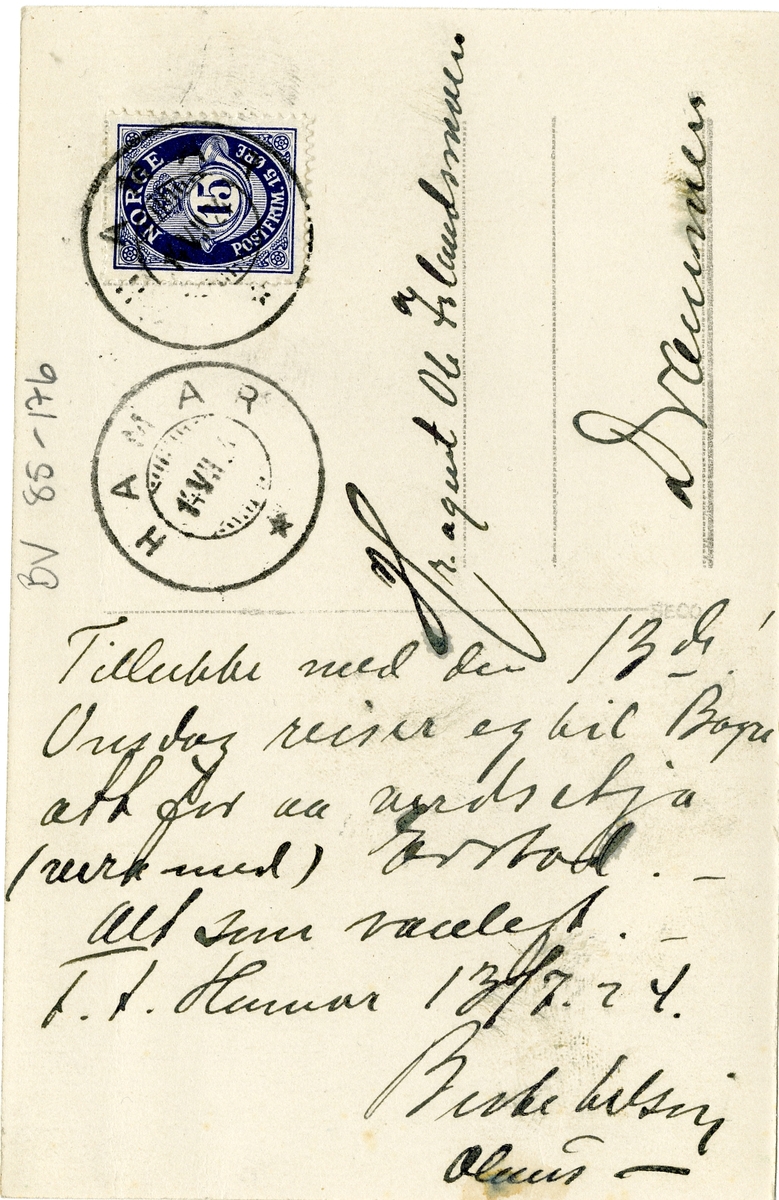 NORGE
15
POSTFRIM. 15 ØRE
HAMAR
14 VII
BV 85-176
Hr. agent Ole Aslandsmoen
Drammen
RECO
Tillukke med den 13de!
Onsdag reiser eg til Bagn
att for aa verdsetja
(vera med) Ørstad. -
Alt som vanlegt. -
t. t. Hamar 13/7. 24.
Beste helsing
Olaus -